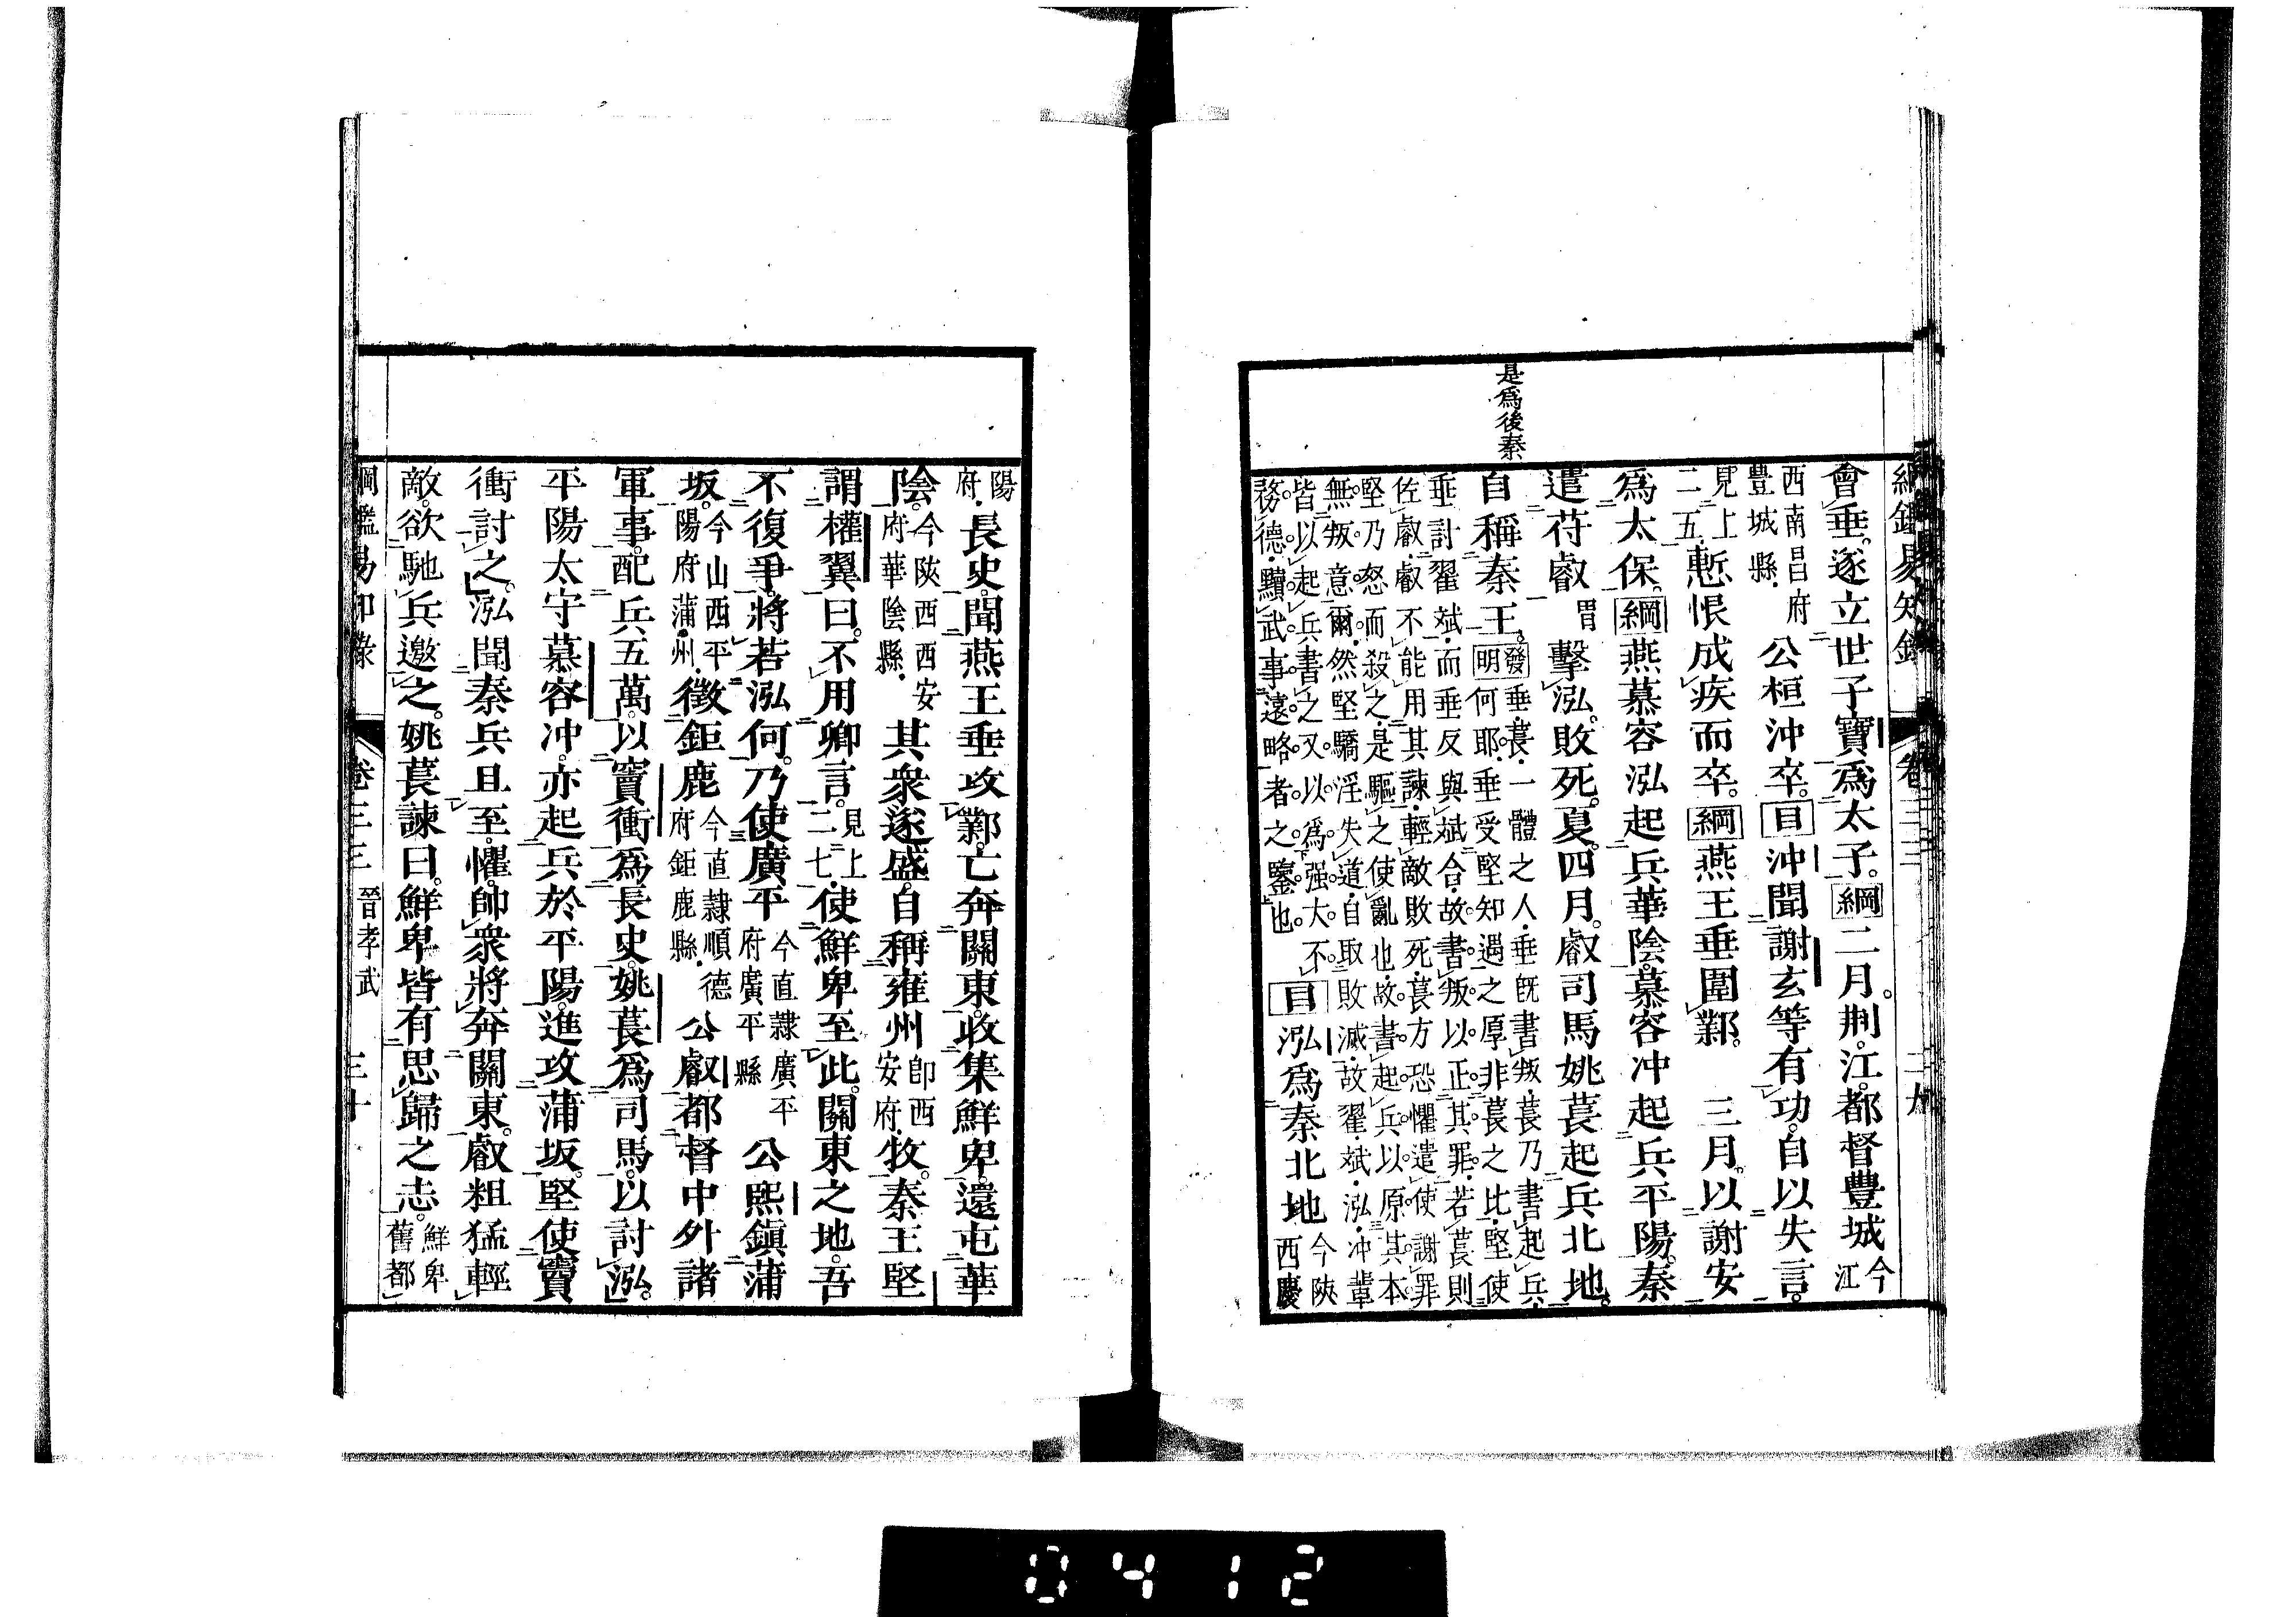 綱鑑易知錄　卷三三　二九
是爲後秦
會垂。遂立世子寶爲太子。綱二月。荊。江。都督豐城今江
西南昌府豐城縣．公桓沖卒。目沖聞謝玄等有功。自以失言。
見上二五．慙恨成疾而卒。綱燕王垂圍鄴。　三月。以謝安
爲太保。綱燕慕容泓起兵華陰。慕容冲起兵平陽。秦
遣苻叡擊泓。敗死。夏。四月。叡司馬姚萇起兵北地。
自稱秦王。發明垂．萇．一體之人．垂旣書叛．萇乃書起兵．何耶．垂受堅知遇之厚非萇之比．堅使
垂討翟斌．而垂反與斌合．故書叛以正其罪．若萇則
佐叡．叡不能用其諫．輕敵敗死．萇方恐懼遣使謝罪
堅乃怒而殺之．是驅之使亂也．故書起兵以原其本
無叛意爾．然堅驕淫失道．自取敗滅．故翟斌．泓．冲輩
皆以起兵書之．又以爲强大不
務德．黷武事遠略者之鑒也。目泓爲秦北地今陝西慶
陽府．長史。聞燕王垂攻鄴。亡奔關東。收集鮮卑。還屯華
陰。今陝西西安府華陰縣．其衆遂盛。自稱雍州卽西安府．牧。秦王堅
謂權翼曰。不用卿言。見上二七．使鮮卑至此。關東之地。吾
不復爭。將若泓何。乃使廣平今直隷廣平府廣平縣公熙鎭蒲
坂。今山西平陽府蒲州．徵鉅鹿今直隷順德府鉅鹿縣．公叡都督中外諸
軍事。配兵五萬。以竇衝爲長史。姚萇爲司馬。以討泓。
平陽太守慕容冲。亦起兵於平陽。進攻蒲坂。堅使竇
衝討之。泓聞秦兵且至。懼。帥衆將奔關東。叡粗猛輕
敵。欲馳兵邀之。姚萇諫曰。鮮卑皆有思歸之志。鮮卑舊都
綱鑑易知錄　卷三三　晉孝武　三十
0412